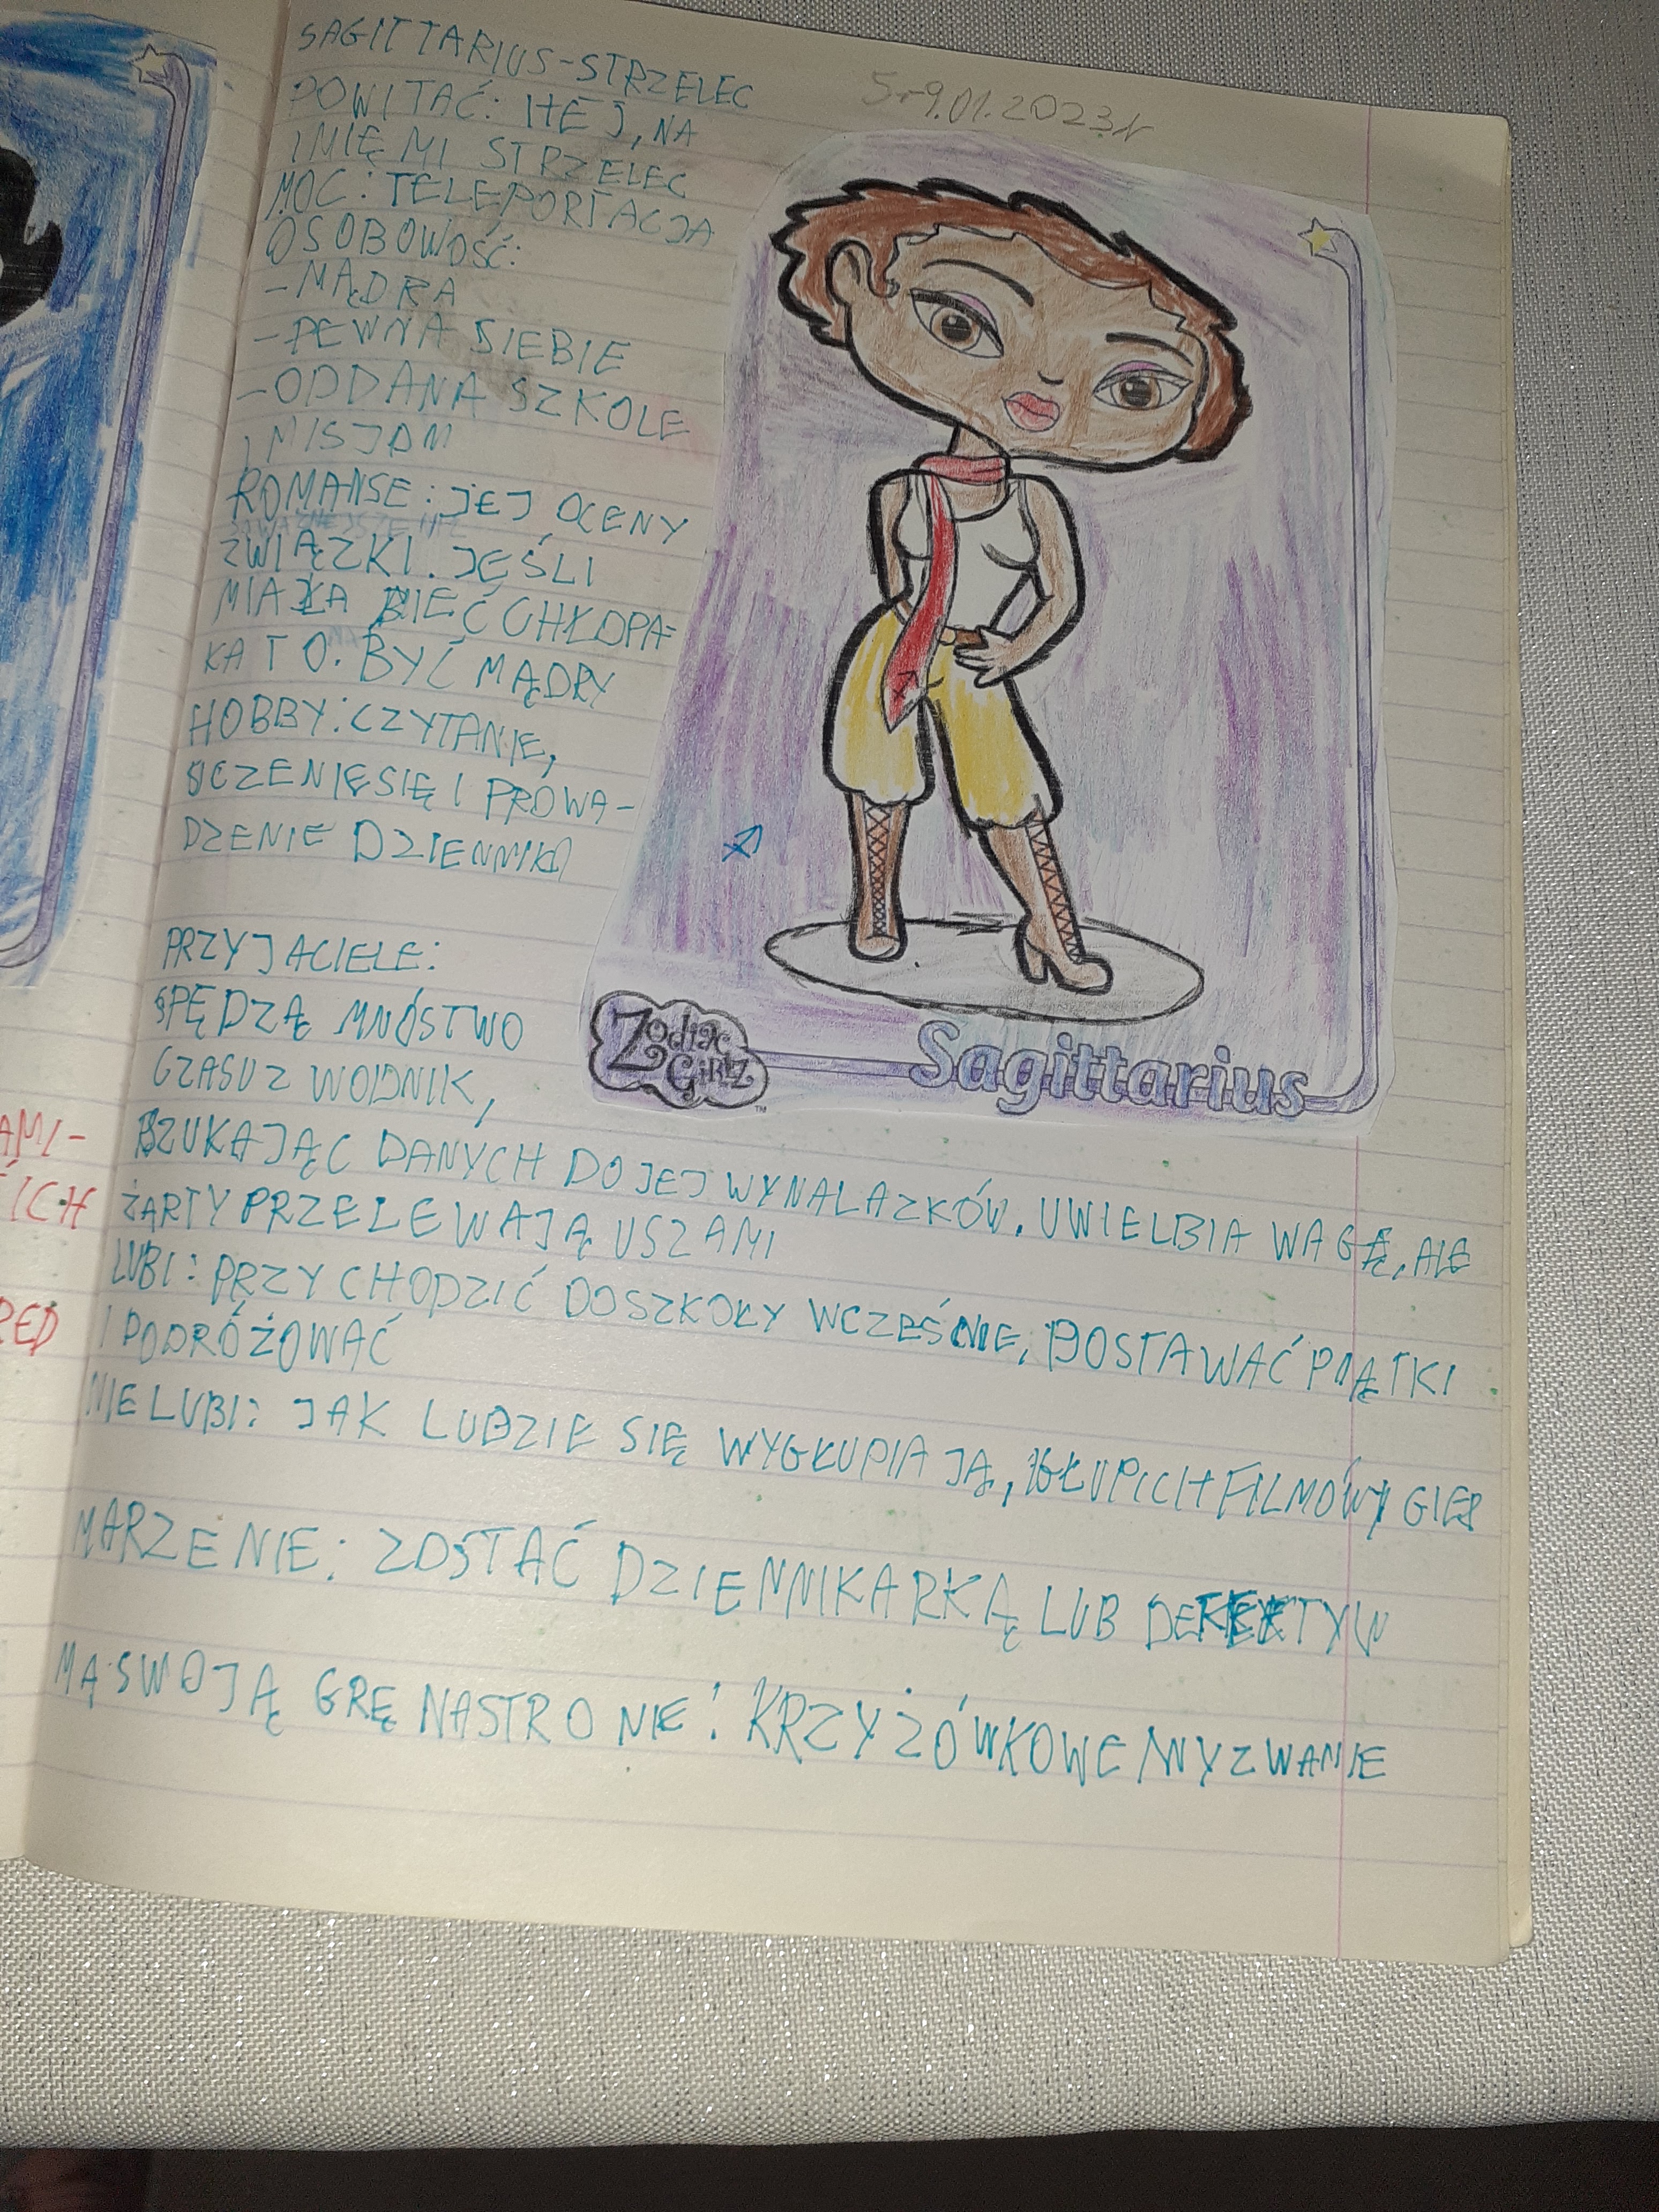 SAGITTARIUS-STRZELEC
5-9.01.2023r
POWITAĆ: HEJ, NA
IMIĘ MI STRZELEC
MOC: TELEPORTACJA
OSOBOWOŚĆ:
-MĄDRA
-PEWNA SIEBIE
-ODDANA SZKOLE
I MISJOM
ROMANSE: JEJ OCENY
SĄ WAŻNIEJSZE NIŻ
ZWIĄZKI. JEŚLI
MIAŁA MIEĆ CHŁOPA-
KA TO. BYĆ MĄDRY
HOBBY: CZYTANIE,
UCZENIE SIĘ I PROWA-
DZENIE DZIENNIKA
PRZYJACIELE:
SPĘDZĄ MNÓSTWO
CZASU Z WODNIK,
SZUKAJĄC DANYCH DO JEJ WYNALAZKÓW. UWIELBIA WAGĘ, ALE
ŻARTY PRZELEWAJĄ USZAMI
LUBI: PRZYCHODZIĆ DO SZKOŁY WCZEŚNIE, DOSTAWAĆ PIĄTKI
I PODRÓŻOWAĆ
NIE LUBI: JAK LUDZIE SIĘ WYGŁUPIAJĄ, GŁUPICH FILMÓW I GIER
MARZENIE: ZOSTAĆ DZIENNIKARKĄ LUB DETEKTYW
MA SWOJĄ GRĘ NA STRONIE: KRZYŻÓWKOWE WYZWANIE
Zodiac
Girlz
TM
Sagittarius
AMI-
ICH
RED